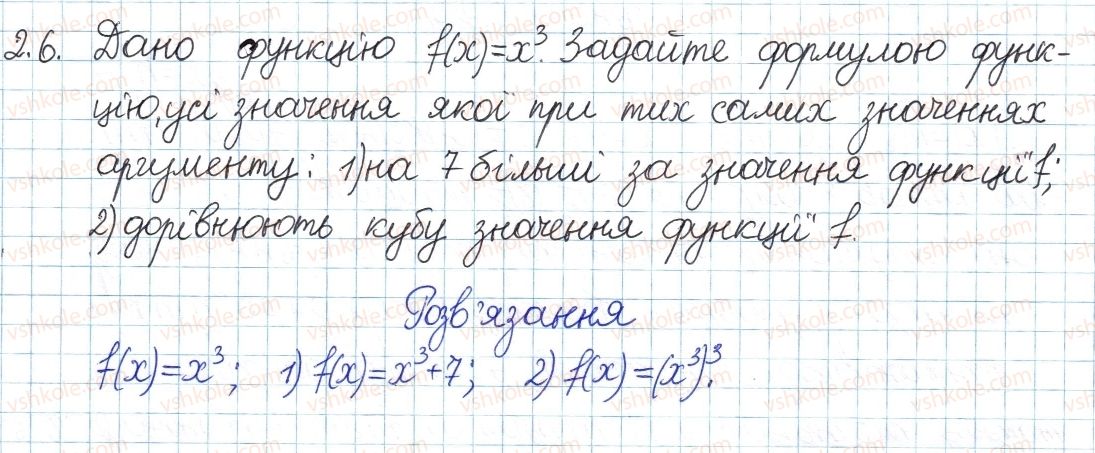 2.6. Дано функцію f(x)=x³. Задайте формулою функ-
цію, усі значення якої при тих самих значеннях
аргументу: 1) на 7 більші за значення функції f;
2) дорівнюють кубу значення функції f.
Розв'язання
f(x)=x³; 1) f(x)=x³+7; 2) f(x)=(x³)³.